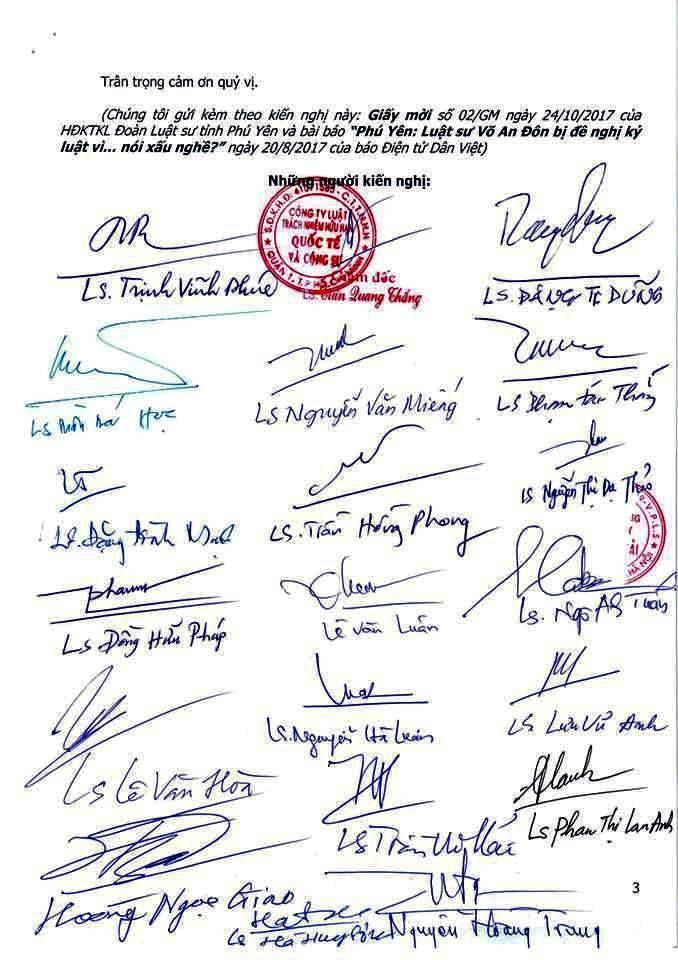 Trân trọng cảm ơn quý vị.
(Chúng tôi gửi kèm theo kiến nghị này: Giấy mời số 02/GM ngày 24/10/2017 của
HĐKTKL Đoàn Luật sư tỉnh Phú Yên và bài báo “Phú Yên: Luật sư Võ An Đôn bị đề nghị kỷ
luật vì... nói xấu nghề?” ngày 20/8/2017 của báo Điện tử Dân Việt)
Những người kiến nghị:
CÔNG TY LUẬT
TRÁCH NHIỆM HỮU HẠN
QUỐC TẾ
VÀ CỘNG SỰ
QUẬN 1 - T.P HỒ CHÍ MINH
LS. Trịnh Vĩnh Phúc
đốc
LS. Quang Thắng
LS. ĐẶNG DŨNG
LS Học
LS Nguyễn Văn Miếng
LS Phạm Tấn Thắng
LS. Đặng
LS. Trần Hồng Phong
LS Nguyễn Thị Dạ Thảo
HÀ NỘI
LS Đồng Hữu Pháp
Lê Văn Luân
LS. Ngô Tuấn
LS Lê Văn Hòa
LS. Nguyễn Hà Luân
LS Lưu Vũ Anh
LS Trần
LS Phan Thị Lan Anh
Hoàng Ngọc Giao
LS Hà Huy Sơn
Nguyễn Hoàng Trung
3